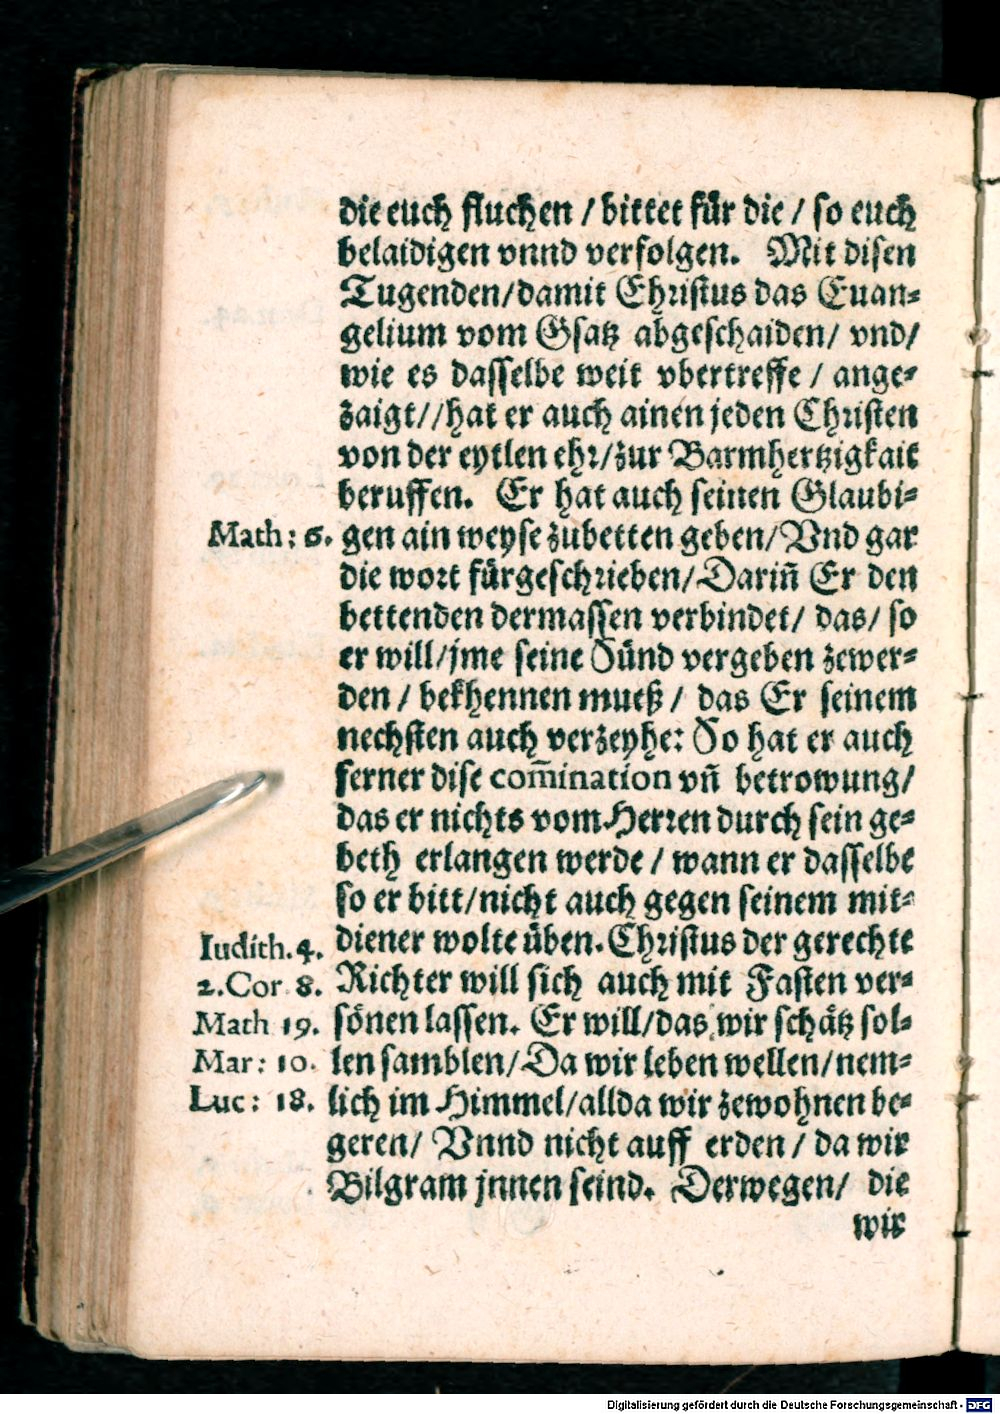 die euch fluchen / bittet für die / so euch
belaidigen vnnd verfolgen. Mit disen
Tugenden/damit Christus das Euan-
gelium vom Gsatz abgeschaiden/ vnd/
wie es dasselbe weit vbertreffe / ange-
zaigt//hat er auch ainen jeden Christen
von der eytlen ehr/zur Barmhertzigkait
beruffen. Er hat auch seinen Glaubi-
Math: 6. gen ain weyse zubetten geben/Vnd gar
die wort fürgeschrieben/Darin̄ Er den
bettenden dermassen verbindet/ das/ so
er will/jme seine Sünd vergeben zewer-
den / bekhennen mueß / das Er seinem
nechsten auch verzeyhe: So hat er auch
ferner dise com̄ination vn̄ betrowung/
das er nichts vom Herren durch sein ge-
beth erlangen werde / wann er dasselbe
so er bitt/nicht auch gegen seinem mit-
Iudith. 4. diener wolte üben. Christus der gerechte
2. Cor 8. Richter will sich auch mit Fasten ver-
Math 19. sönen lassen. Er will/das wir schätz sol-
Mar: 10. len samblen/Da wir leben wellen/nem-
Luc: 18. lich im Himmel/allda wir zewohnen be-
geren/ Vnnd nicht auff erden / da wir
Bilgram jnnen seind. Derwegen/ die
wir
Digitalisierung gefördert durch die Deutsche Forschungsgemeinschaft - DFG